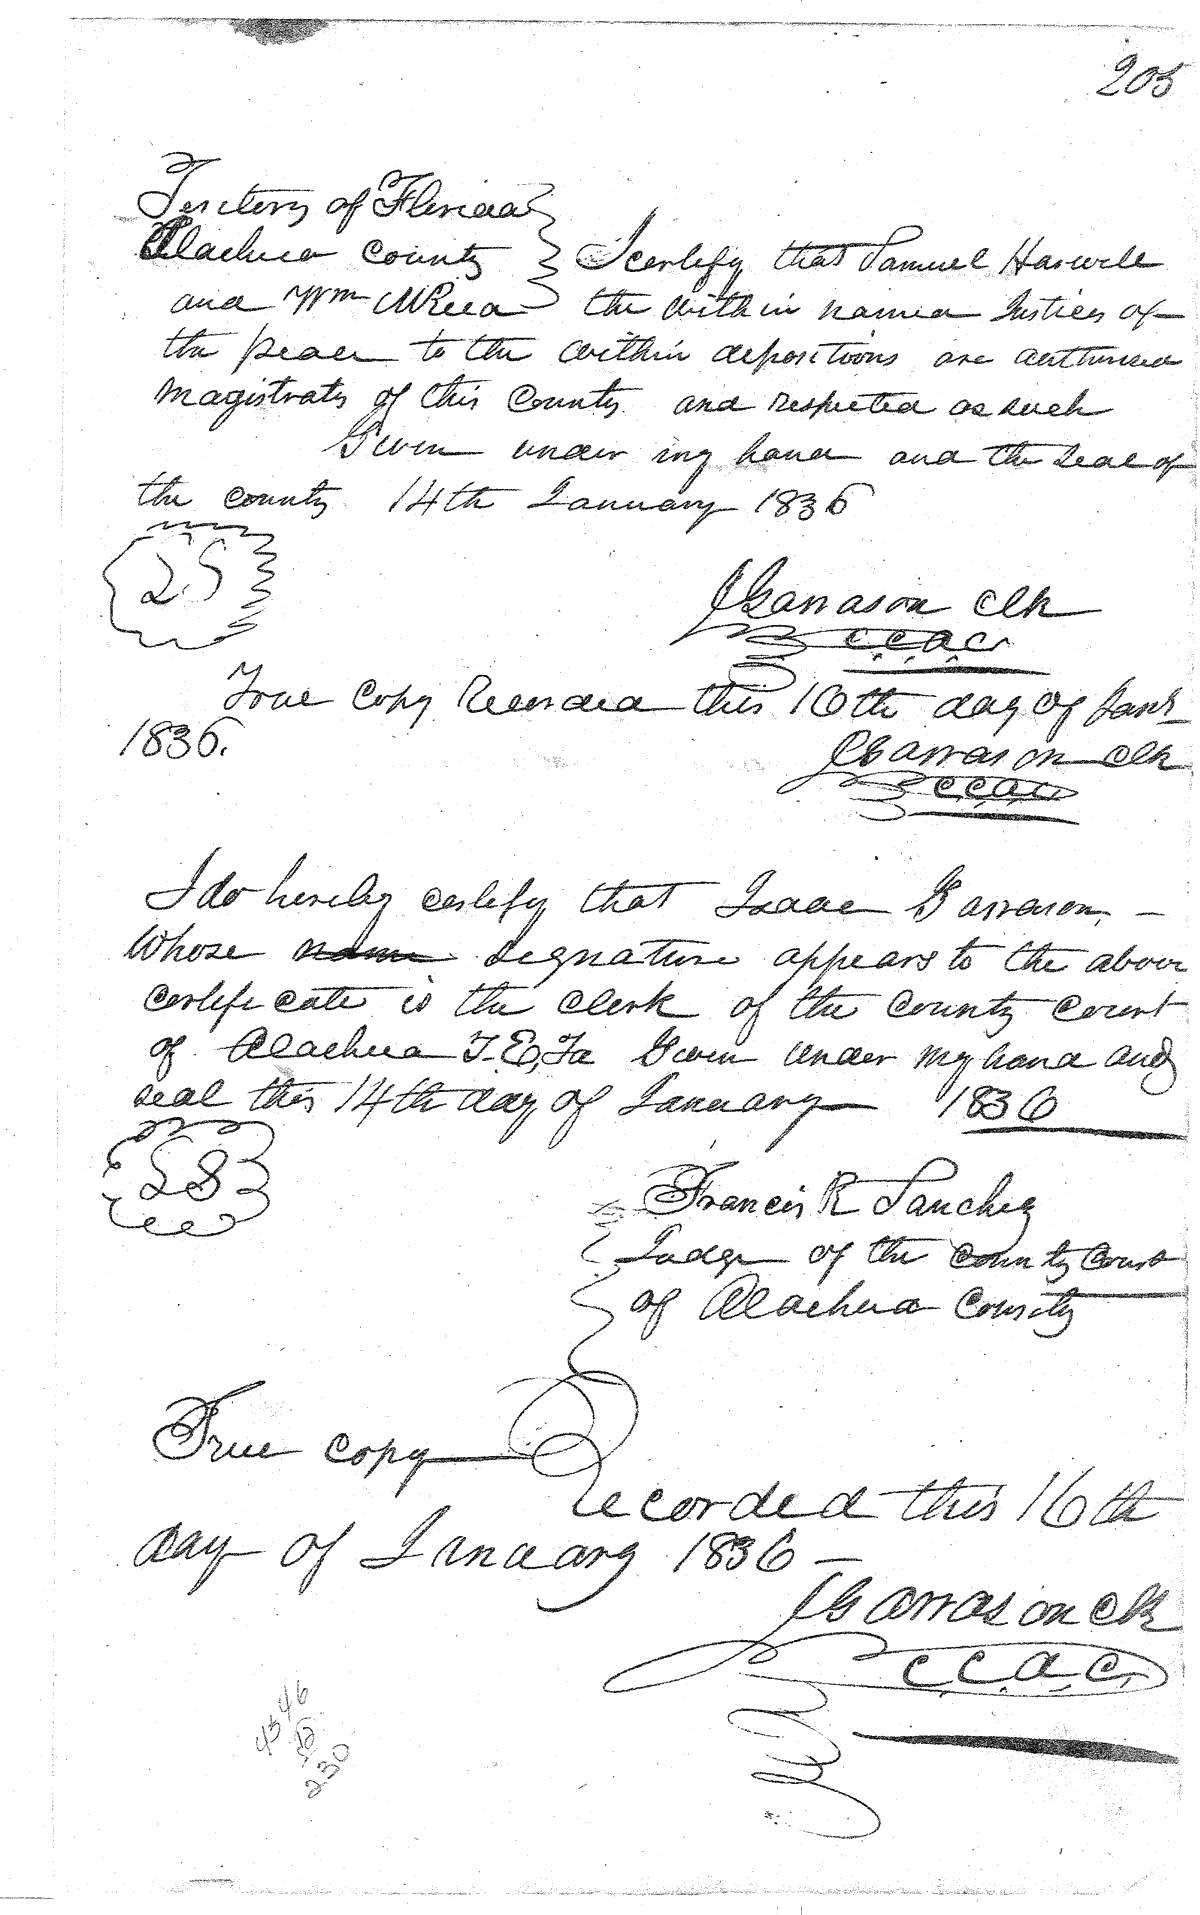 205
Territory of Florida
Alachua County I certify that Samuel Harwell
and Wm McRea the within named Justices of
the peace to the within depositions are authorised
Magistrates of this County and respected as such
Given under my hand and the Seal of
the County 14th January 1836
LS
I Garrason Clk
C.C.A.C.
True Copy Recorded this 16th day of Jany
1836.
I Garrason Clk
C.C.A.C.
I do hereby certify that Isaac Garrason
whose name signature appears to the above
certificate is the Clerk of the County Court
of Alachua T.E.Fa Given under my hand and
seal this 14th day of January 1836
LS
Francis R Sanchez
Judge of the County Court
of Alachua County
True copy Recorded this 16th
day of January 1836 —
I Garrason Clk
C.C.A.C.
4346
230